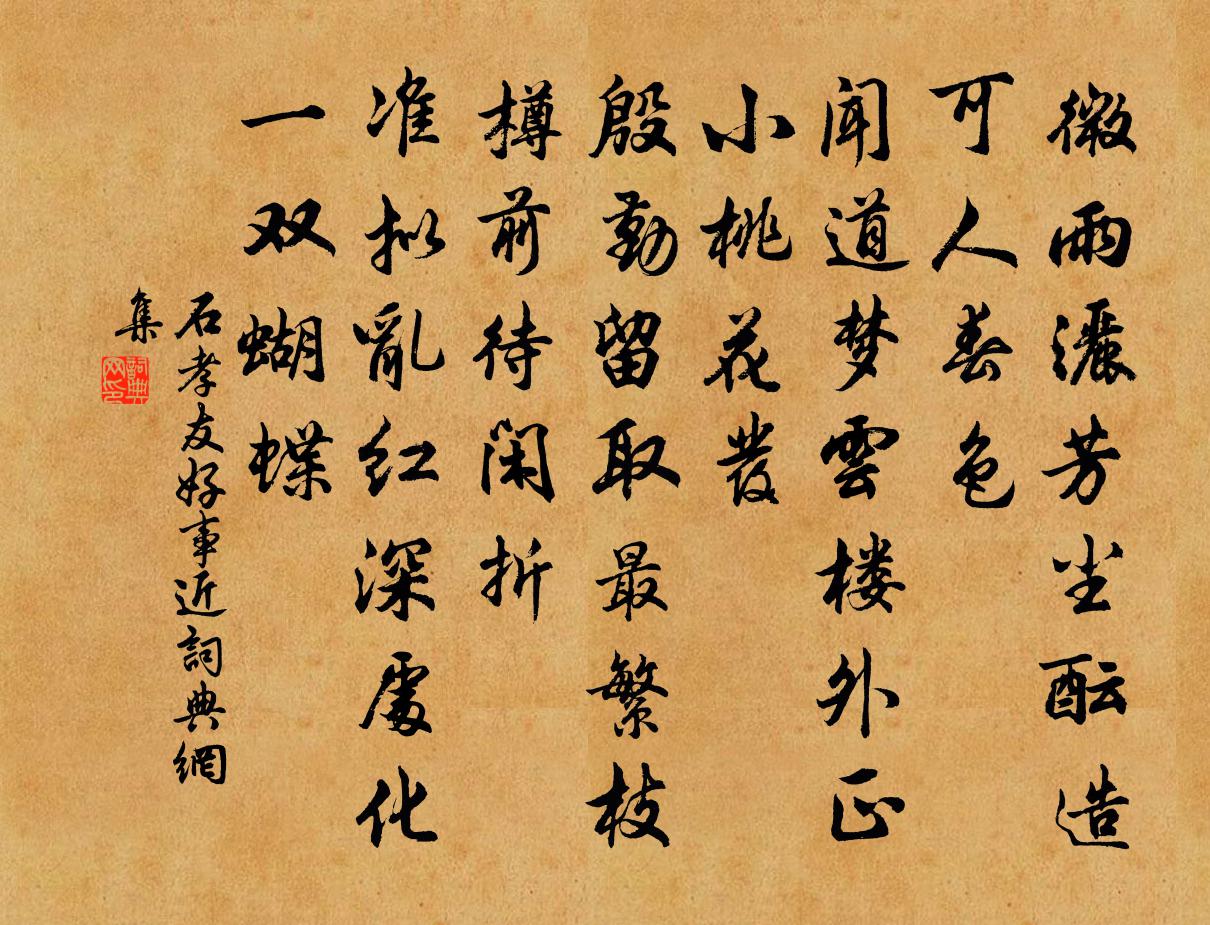 微雨灑芳尘酝造
可人春色
闻道梦雲楼外正
小桃花發
殷勤留取最繁枝
樽前待闲折
准拟亂红深處化
一双蝴蝶
石孝友好事近詞典網
集
詞典
网印